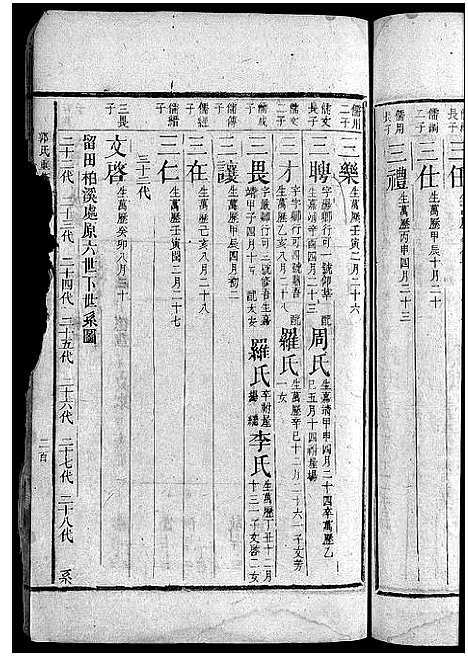 三任
儒満
二子
三仕
生萬歷甲辰十月二十
儒用
長子
三禮
生萬歷丙申四月二十三
儒用
二子
三樂
生萬歷壬寅二月二十六
儒文
長子
三聘
生嘉靖辛酉四月二十三
配
周氏
生嘉靖甲申四月二十四卒萬歷乙
巳五月十四
儒文
二子
三才
生萬歷乙亥八月二十八
配
羅氏
生萬歷辛巳十二月二十六一子文芳
一女
儒成
子
三畏
字嚴卿行可三號修吾生嘉
靖甲子四月十五
配太安
羅氏
李氏
生萬歷丁丑十二月
十三一子文啓二女
儒傳
子
三讓
生萬歷甲辰四月初二
儒經
子
三在
生萬歷己亥八月二十八
儒縉
子
三仁
生萬歷壬寅閏二月二十七
二十二代
三畏
子
文啓
生萬歷癸卯八月三十
留田柏溪處原六世下世系圖
二十二代 二十三代 二十四代 二十五代 二十六代 二十七代 二十八代
系
郭氏
二百